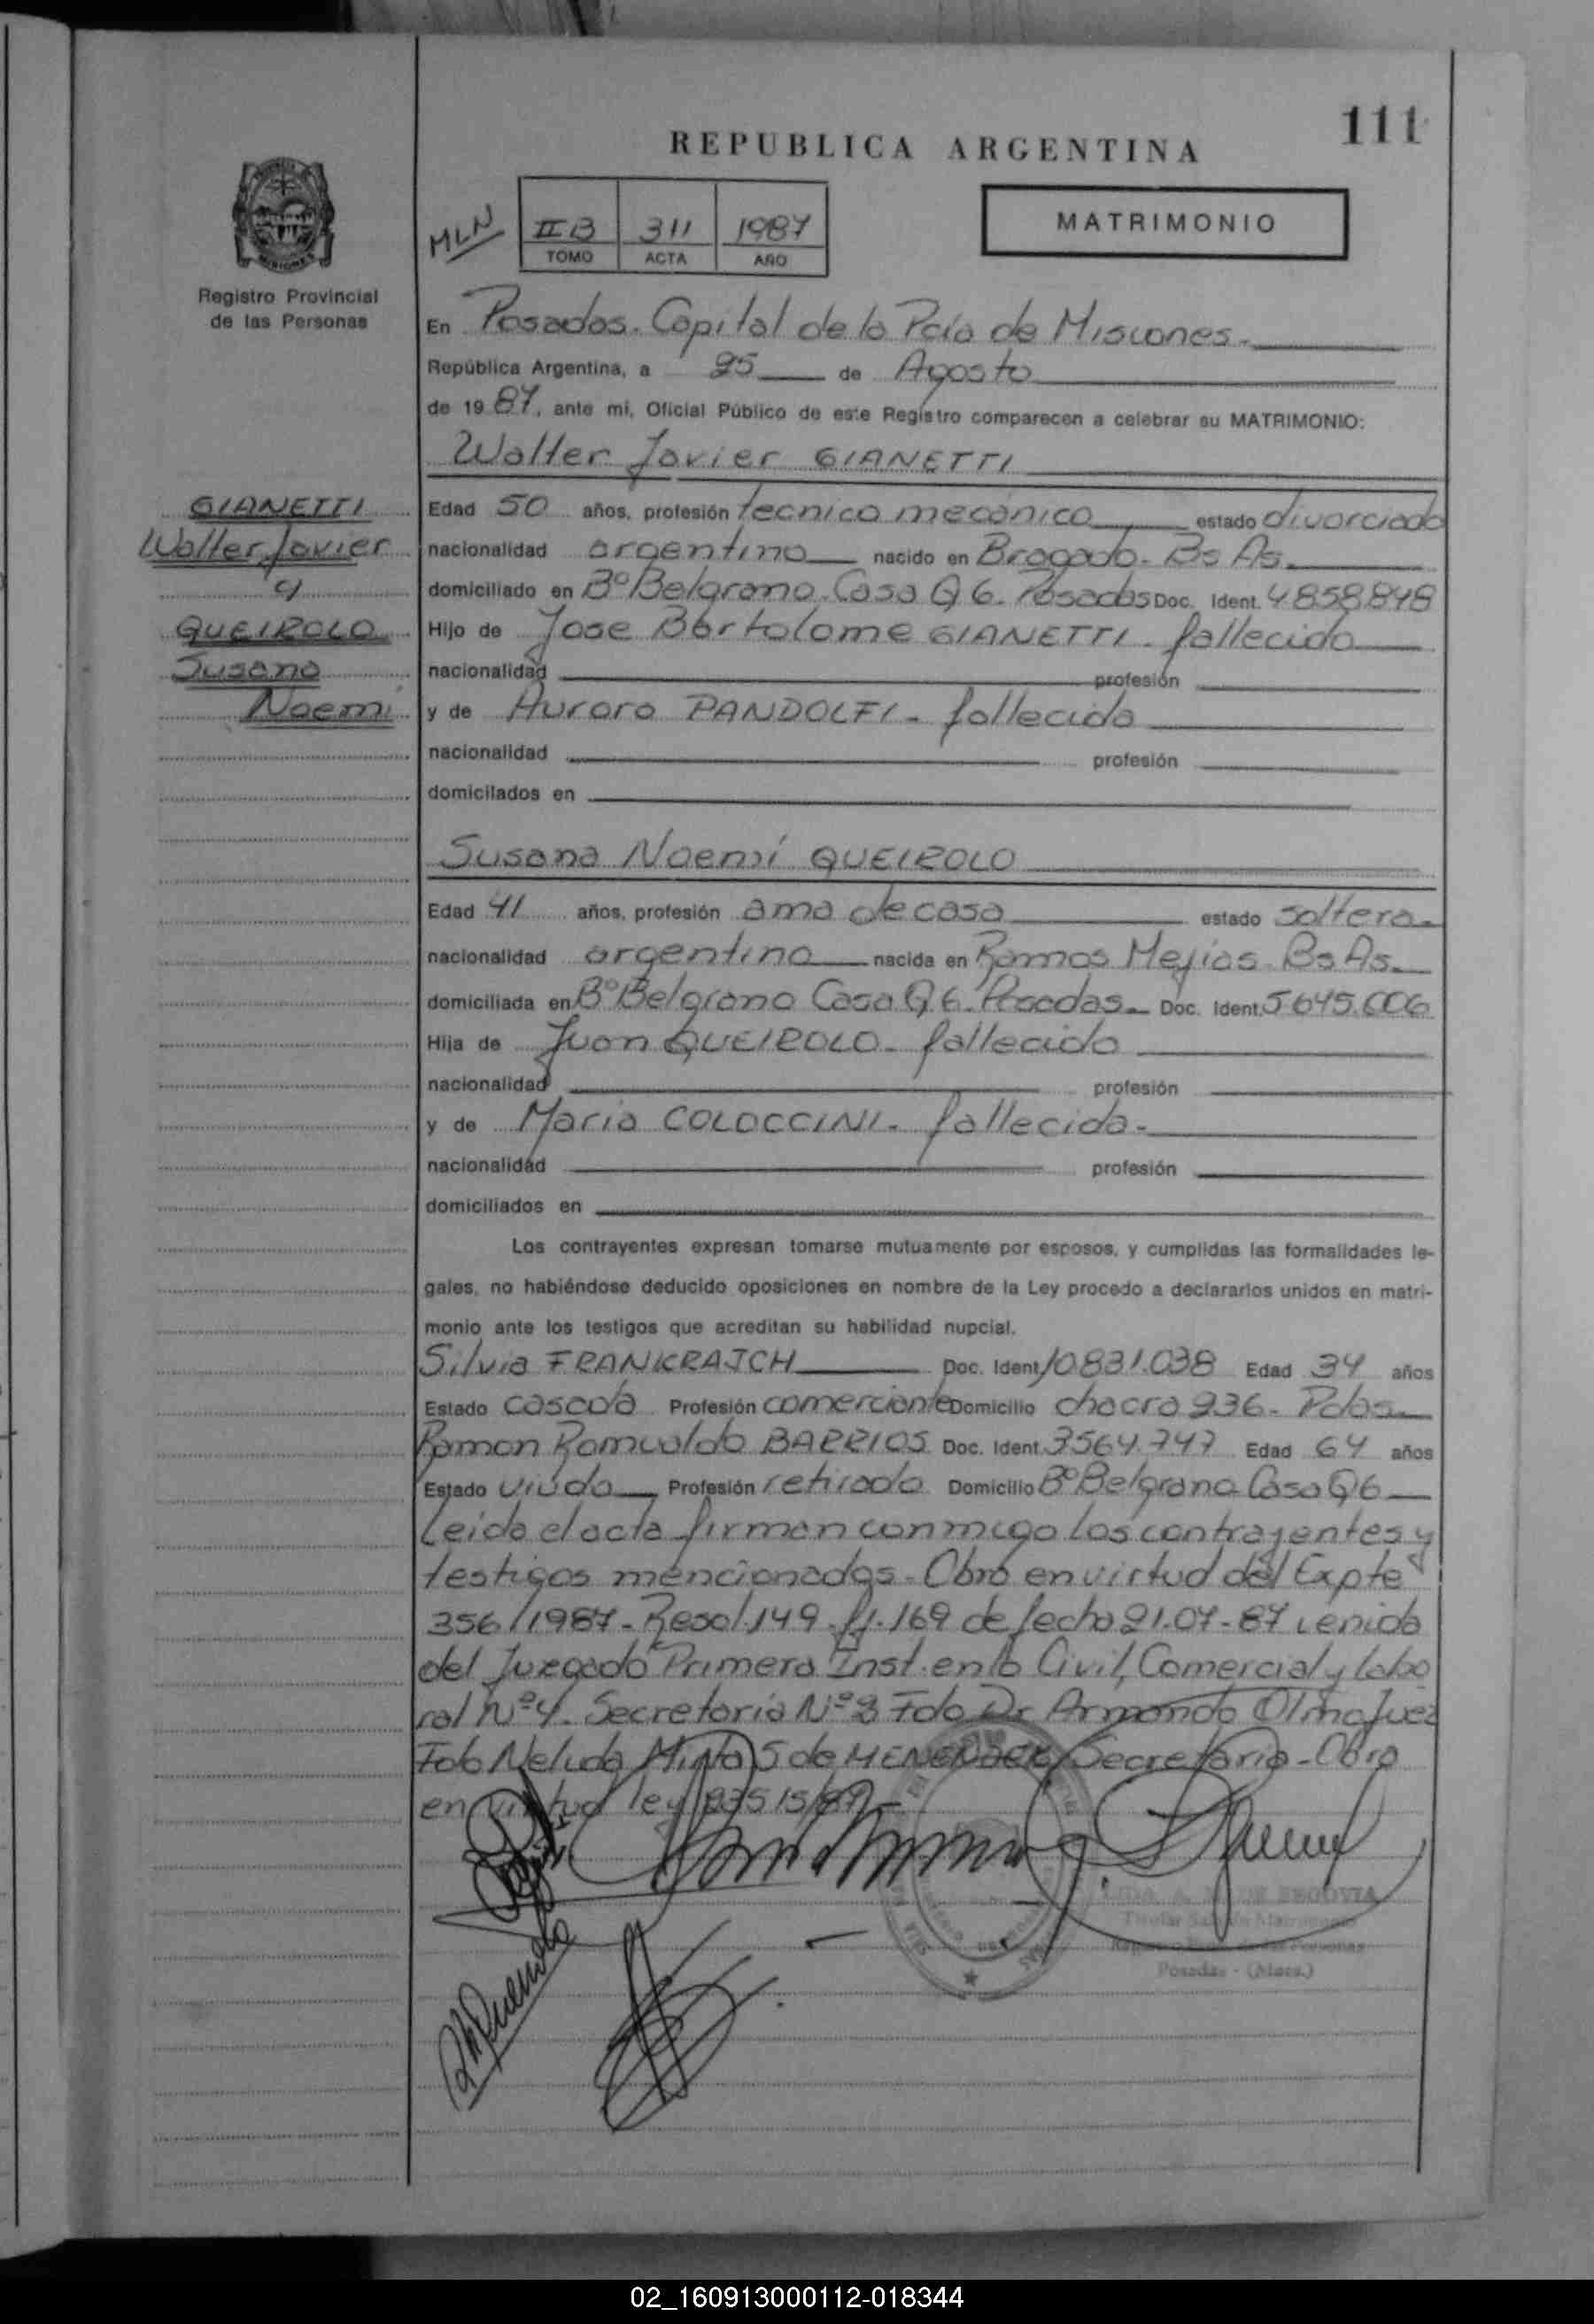 111
REPUBLICA ARGENTINA
MLN
II B 311 1987
TOMO ACTA AÑO
MATRIMONIO
Registro Provincial
de las Personas
En Posadas. Capital de la Pcia de Misiones.
República Argentina, a 25 de Agosto
de 1987, ante mi, Oficial Público de este Registro comparecen a celebrar su MATRIMONIO:
Walter Javier GIANETTI
GIANETTI
Walter Javier
y
QUEIROLO
Susana
Noemi
Edad 50 años, profesión tecnico mecánico estado divorciado
nacionalidad argentino nacido en Bragado. Bs As.
domiciliado en Bº Belgrano. Casa Q 6. Posadas Doc. Ident. 4858848
Hijo de Jose Bartolome GIANETTI. fallecido
nacionalidad profesión
y de Aurora PANDOLFI. fallecida
nacionalidad profesión
domiciliados en
Susana Noemí QUEIROLO
Edad 41 años, profesión ama de casa estado soltera.
nacionalidad argentina nacida en Ramos Mejias. Bs As.
domiciliada en Bº Belgrano Casa Q 6. Posadas. Doc. Ident. 5.645.606
Hija de Juan QUEIROLO. fallecido
nacionalidad profesión
y de Maria COLOCCINI. fallecida.
nacionalidad profesión
domiciliados en
Los contrayentes expresan tomarse mutuamente por esposos, y cumplidas las formalidades le-
gales, no habiéndose deducido oposiciones en nombre de la Ley procedo a declararlos unidos en matri-
monio ante los testigos que acreditan su habilidad nupcial.
Silvia FRANKRAJCH Doc. Ident 10831.038 Edad 34 años
Estado casada Profesión comerciante Domicilio chacra 236. Pdas.
Ramon Romualdo BARRIOS Doc. Ident. 3564.747 Edad 64 años
Estado viudo Profesión retirado Domicilio Bº Belgrano Casa Q6
Leida el acta firman conmigo los contrayentes y
testigos mencionados. Obro en virtud del Expte
356/1987. Resol. 149. fj. 169 de fecha 21.07-87 venida
del Juzgado Primera Inst. en lo Civil, Comercial y labo
ral Nº 4. Secretaria Nº 2 Fdo Dr Armando Olmo Juez
Fdo Nelida Mirta S de MENENDEZ Secretaria. Obro
en virtud ley 23515/87
DE SEGOVIA
Titular
Posadas - (Mnes.)
02_160913000112-018344